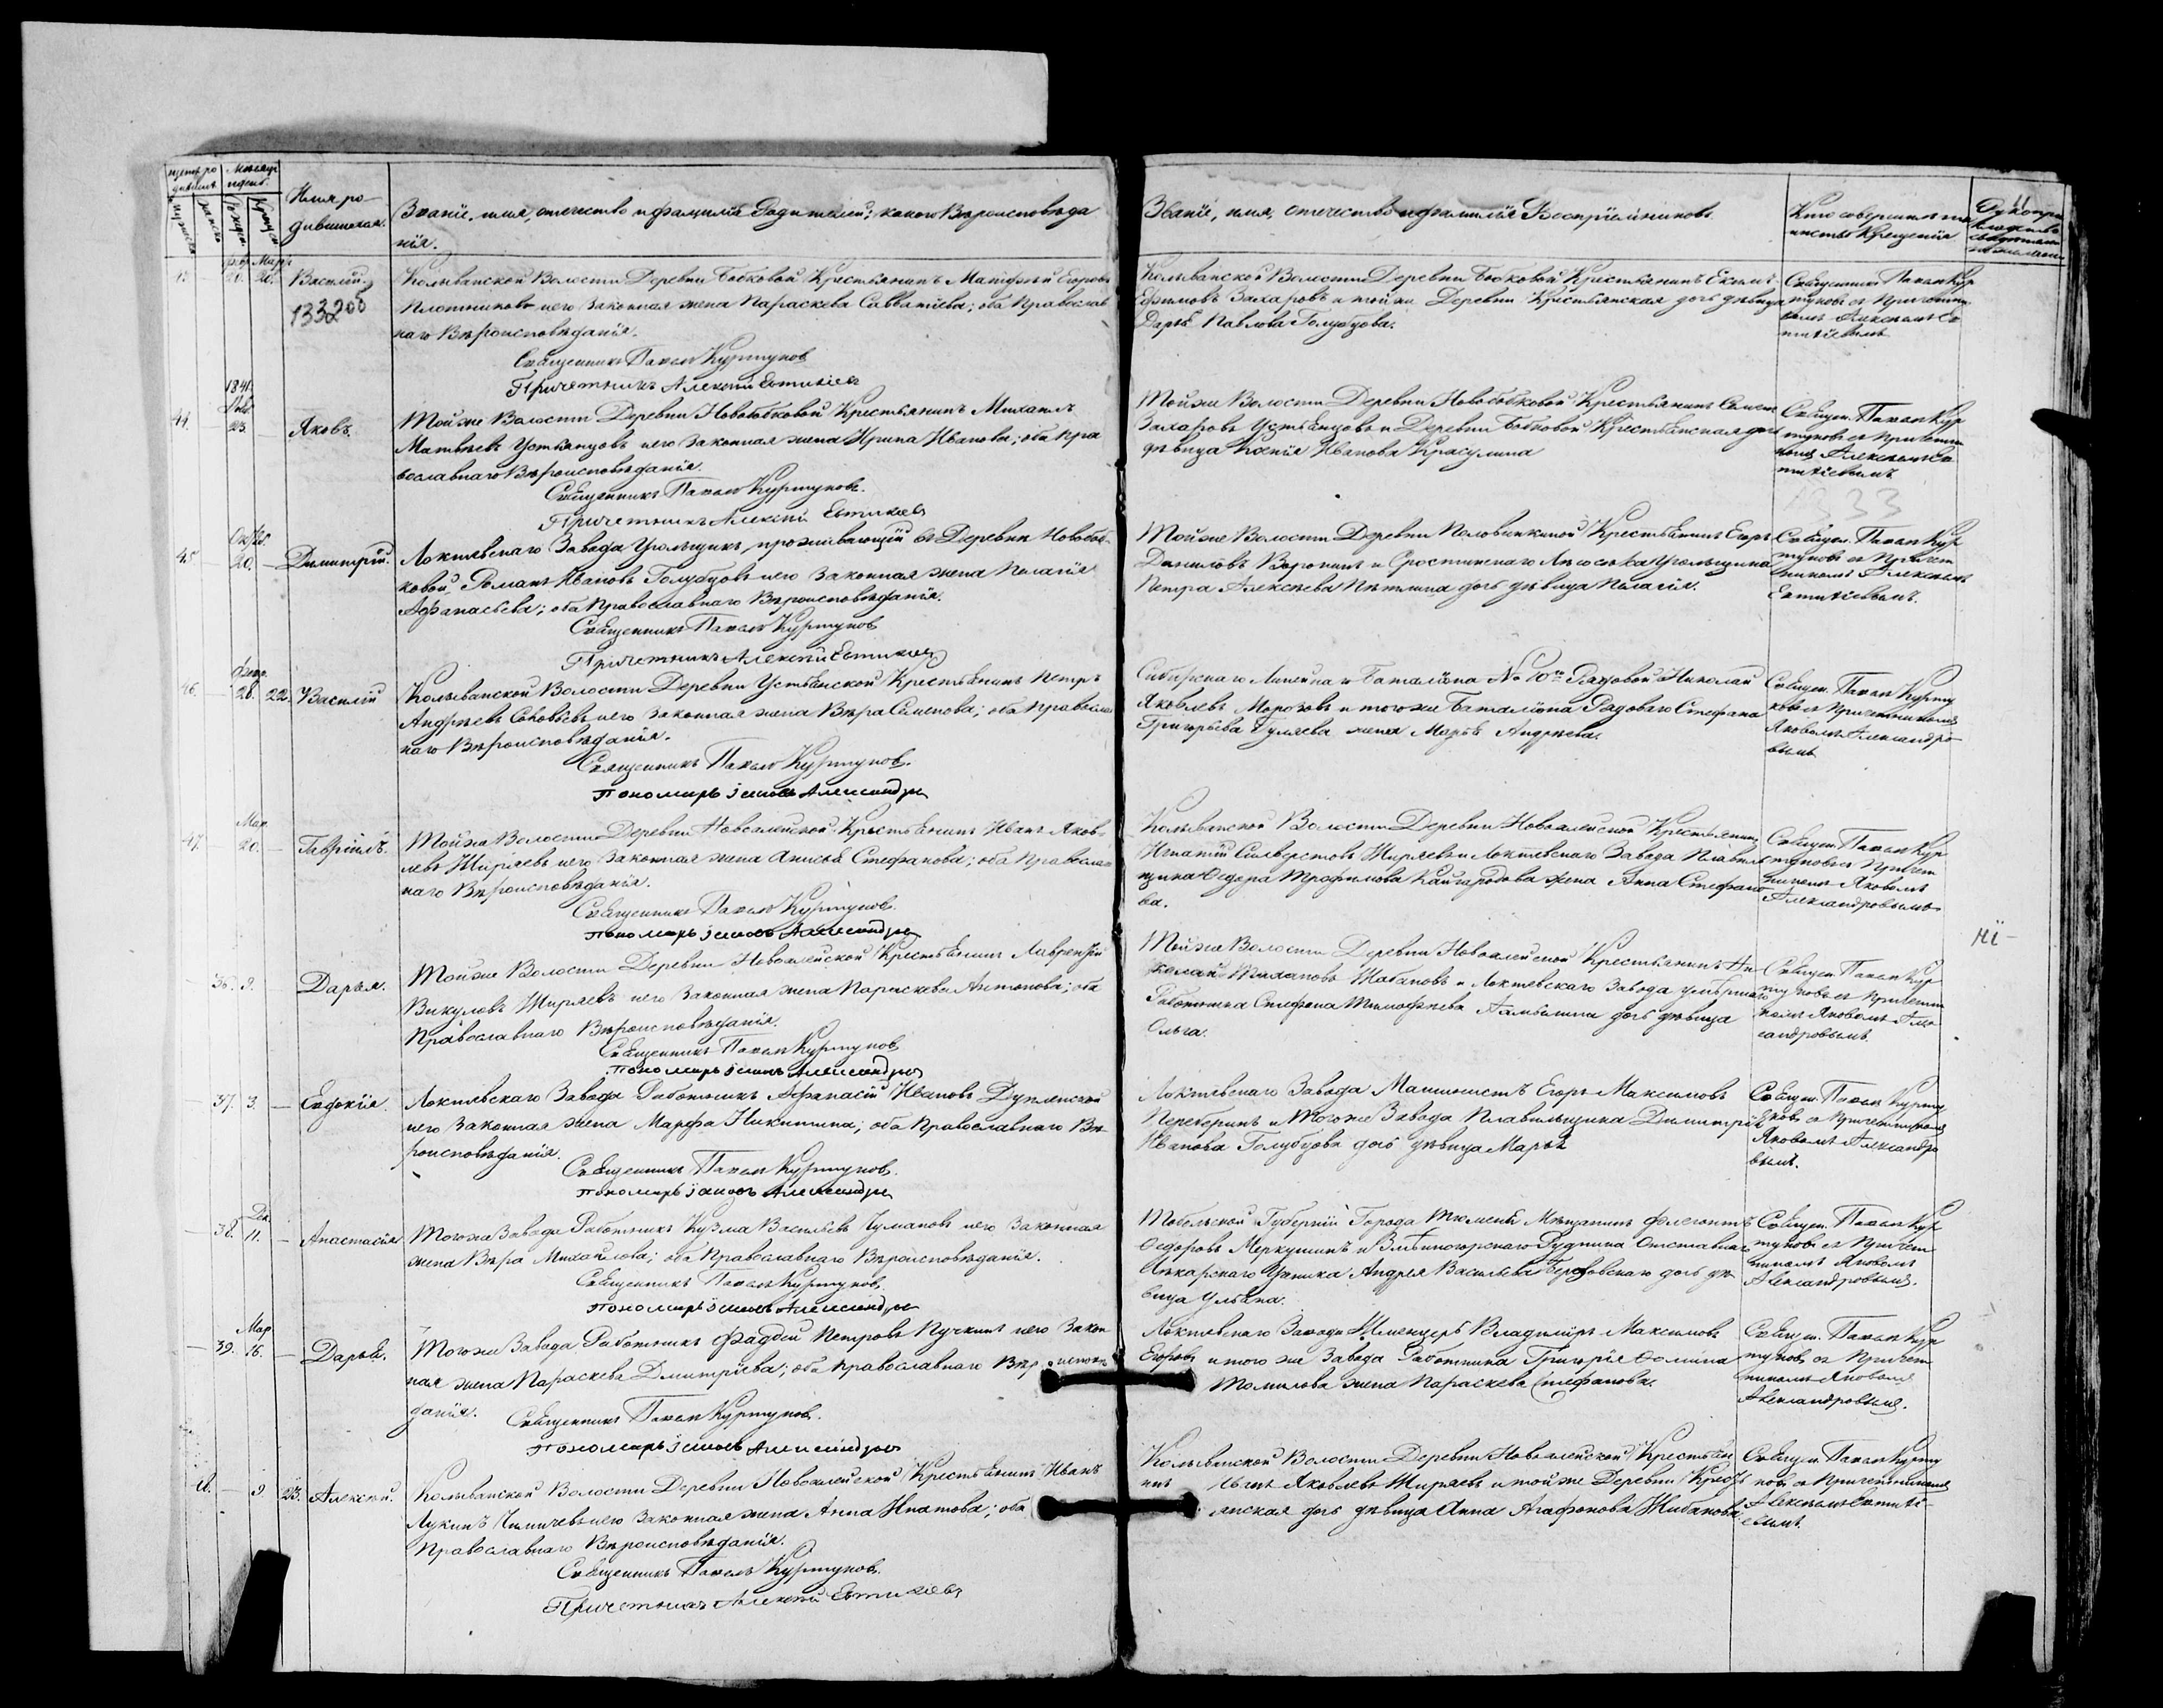 Имя ро-
дившихся.
Званіе, имя, отчество и фамилія Родителей; какого Вѣроисповѣда
нія.
Званіе, имя, отчество и фамилія Воспріемниковъ.
Кто совершилъ та
инство Крещенія
Февр. Мар.
28. 20. Василій. Колыванской Волости Деревни Бобковой Крестьянинъ Матфей Егоровъ
Плотниковъ и его законная жена Параскева Савватіева; оба Православ
наго Вѣроисповѣданія.
133200
Священникъ Павелъ Куртуковъ
Причетникъ Алексій Евтихіевъ
Колыванской Волости Деревни Бобковой Крестьянинъ
Ефимовъ Захаровъ и тойже Деревни Крестьянская дочь дѣвица
Дарья Павлова Голубцова.
Священникъ Павелъ Кур
туковъ съ Причетни
комъ Алексѣемъ Ев
тихіевымъ
1841.
44. 23. Яковъ. Тойже Волости Деревни Новобобковой Крестьянинъ Михаилъ
Матвѣевъ Устьянцовъ и его законная жена Ирина Иванова; оба Пра
вославнаго Вѣроисповѣданія.
Священникъ Павелъ Куртуковъ.
Причетникъ Алексій Евтихіевъ
Тойже Волости Деревни Новобобковой Крестьянинъ
Захаровъ Устьянцовъ и Деревни Бобковой Крестьянская дочь
дѣвица Ксенія Иванова Красулина
Священ. Павелъ Кур
туковъ съ Причетни
комъ Алексѣемъ Ев
тихіевымъ
1333
Октяб.
45 20. Димитрій. Локтевскаго Завода Угольщикъ, проживающій въ Деревни Новобоб-
ковой, Романъ Ивановъ Голубцовъ и его законная жена Пелагія
Афанасьева; оба Православнаго Вѣроисповѣданія.
Священникъ Павелъ Куртуковъ
Причетникъ Алексій Евтихіевъ
Тойже Волости Деревни Половинкиной Крестьянинъ Егоръ
Даниловъ Воронинъ и Угольщика
Петра Алексѣева дочь дѣвица Пелагія.
Священ. Павелъ Кур
туковъ съ Причет
никомъ Алексѣемъ
Евтихіевымъ.
Февр.
46. 28. 22. Василій Колыванской Волости Деревни Устьянской Крестьянинъ Петръ
Андреевъ Соловьевъ и его законная жена Вѣра Семенова; оба Православ
наго Вѣроисповѣданія.
Священникъ Павелъ Куртуковъ.
Пономарь Іаковъ Александровъ
Сибирскаго Линейнаго Баталіона № 10го Рядовой Николай
Яковлевъ Морозовъ и тогоже Баталіона Рядоваго Стефана
Григорьева Гуляева жена Марья Андреева.
Священ. Павелъ Курту
ковъ съ Причетникомъ
Яковомъ Александро
вымъ
Мар.
47. 20. Гавріилъ. Тойже Волости Деревни Новоалейской Крестьянинъ Иванъ Яков-
левъ Ширяевъ и его законная жена Анисья Стефанова; оба Православ
наго Вѣроисповѣданія.
Священникъ Павелъ Куртуковъ.
Пономарь Іаковъ Александровъ
Колыванской Волости Деревни Новоалейской Крестьянинъ
Игнатій Сильверстовъ Ширяевъ и Локтевскаго Завода Плавиль
щика Федора Трофимова Кайгородова жена Анна Стефано
ва.
Священ. Павелъ Кур
туковъ съ Причет
никомъ Яковомъ
Александровымъ
36. 9. Дарья. Тойже Волости Деревни Новоалейской Крестьянинъ Лаврентій
Викуловъ Ширяевъ и его законная жена Параскева Антонова; оба
Православнаго Вѣроисповѣданія.
Священникъ Павелъ Куртуковъ
Пономарь Іаковъ Александровъ
Тойже Волости Деревни Новоалейской Крестьянинъ Ни-
колай и Локтевскаго Завода умершаго
Работника Стефана Тимофѣева дочь дѣвица
Ольга.
Священ. Павелъ Кур
туковъ съ Причетни
комъ Яковомъ Алек
сандровымъ.
37. 3. Евдокія. Локтевскаго Завода Работникъ Афанасій Ивановъ
и его законная жена Марфа Никитина; оба Православнаго Вѣ-
роисповѣданія.
Священникъ Павелъ Куртуковъ.
Пономарь Іаковъ Александровъ
Локтевскаго Завода Машинистъ Егоръ Максимовъ
и тогоже Завода Плавильщика Димитрія
Иванова Голубцова дочь дѣвица Марья
Священ. Павелъ Курту
ковъ съ Причетникомъ
Яковомъ Александро
вымъ.
Дек.
38. 11. Анастасія Тогоже Завода Работникъ Кузма Васильевъ Чумановъ и его законная
жена Вѣра Михайлова; оба Православнаго Вѣроисповѣданія.
Священникъ Павелъ Куртуковъ.
Пономарь Іаковъ Александровъ
Тобольской Губерніи Города Тюмени Мѣщанинъ Флегонтъ
Федоровъ Меркушинъ и Змѣиногорскаго Рудника Отставнаго
Лѣкарскаго Ученика Андрея Васильева дочь дѣ
вица Ульяна.
Священ. Павелъ Кур
туковъ съ Причет
никомъ Яковомъ
Александровымъ.
Мар.
39. 16. Дарья. Тогоже Завода Работникъ Фаддей Петровъ Пучкинъ и его закон
ная жена Параскева Дмитріева; оба Православнаго Вѣроисповѣ
данія.
Священникъ Павелъ Куртуковъ.
Пономарь Іаковъ Александровъ
Локтевскаго Завода Владиміръ Максимовъ
Егоровъ и того же Завода Работника Григорія Фомина
Томилова жена Параскева Стефанова.
Священ. Павелъ Кур
туковъ съ Причет
никомъ Яковомъ
Александровымъ.
9. 23. Алексій. Колыванской Волости Деревни Новоалейской Крестьянинъ Иванъ
Лукинъ и его законная жена Анна Ипатова; оба
Православнаго Вѣроисповѣданія.
Священникъ Павелъ Куртуковъ.
Причетникъ Алексій Евтихіевъ
Колыванской Волости Деревни Новоалейской Крестьян
инъ Яковлевъ Ширяевъ и тойже Деревни Кресть
янская дочь дѣвица Анна Агафонова
Священ. Павелъ Курту
ковъ съ Причетникомъ
Алексѣемъ Евтихі-
евымъ.